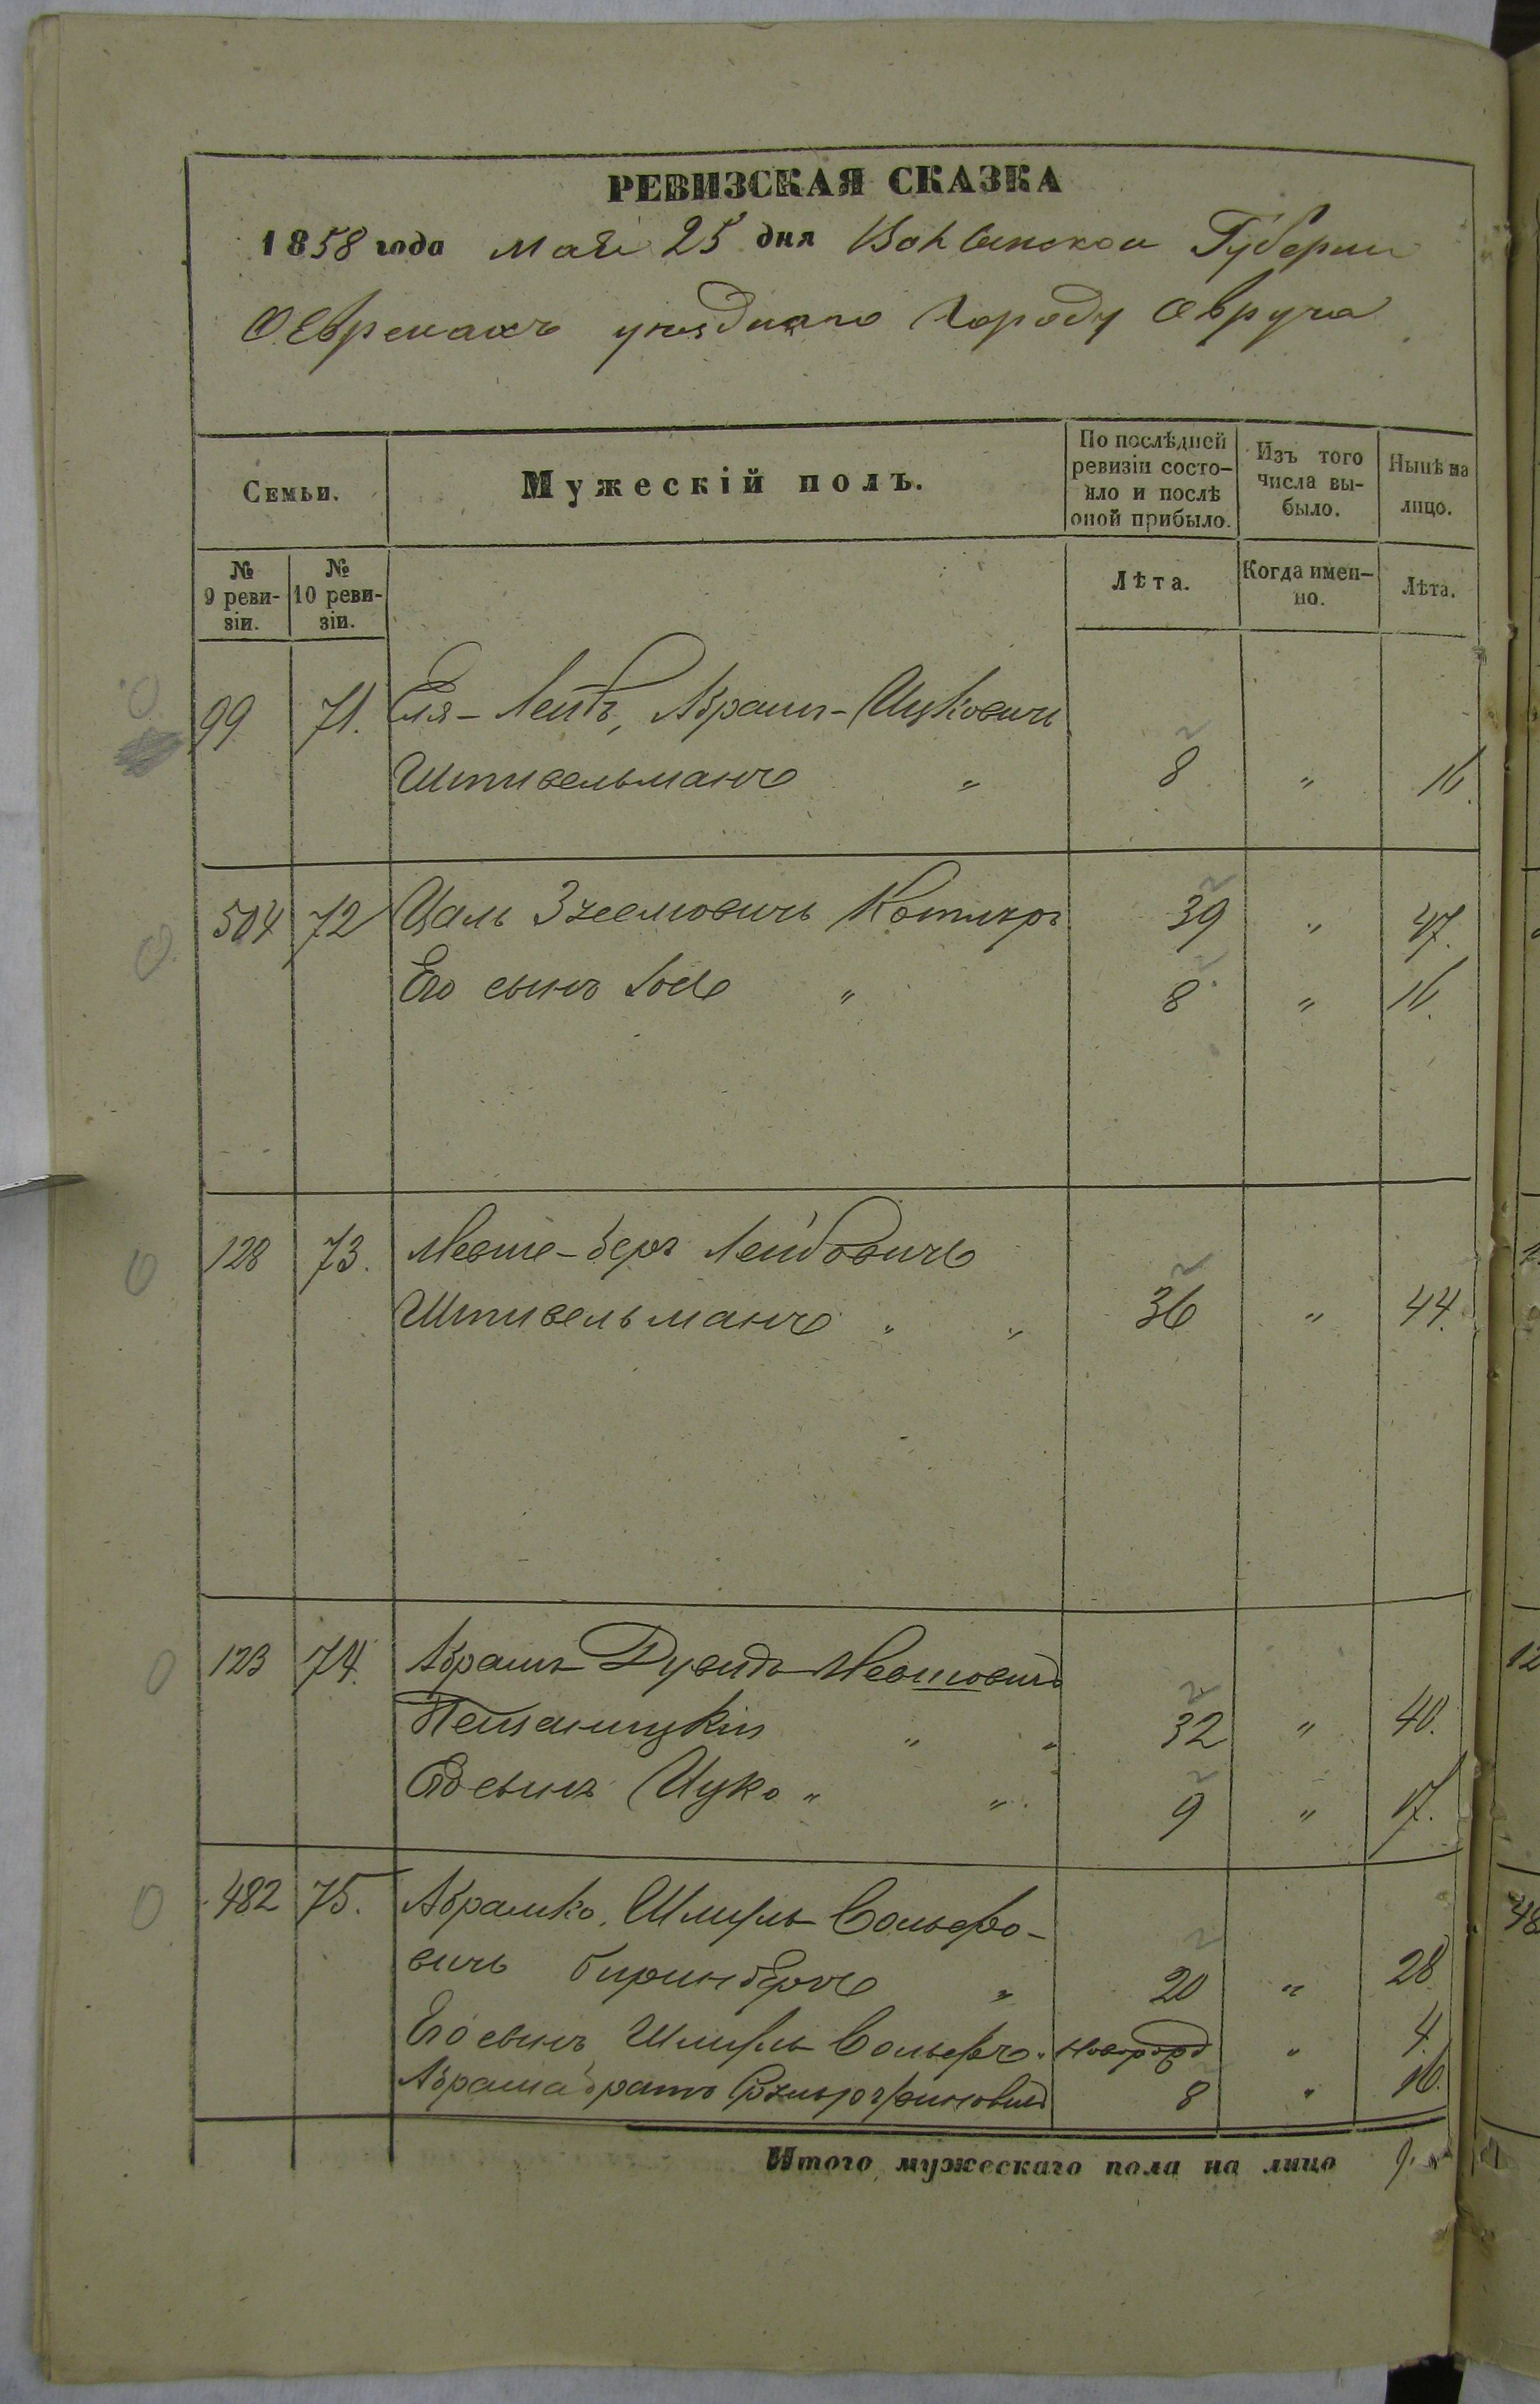 РЕВИЗСКАЯ СКАЗКА
1858 года мая 25 дня Волынской Губерни
О Евреяхъ уезднаго Города Овруча
Семьи.
Мужескій полъ.
По послѣдней ревизіи состо-
яло и послѣ оной прибыло.
Изъ того числа вы-
было.
Нынѣ на лицо.
№ 9 реви-
зіи.
№ 10 реви-
зіи.
Лѣта.
Когда имен-
но.
Лѣта.
99 71. Еля-Лейбъ, Абрамъ-Ицковичъ
Штивельманъ " 8 " 16.
504 72 Цаль Котляръ 39 " 47.
Его сынъ " 8 " 16.
128 73. Мовше-Беръ Лейбовичъ
Штивельманъ " " 36 " 44.
123 74. Абрамъ Дувидъ Мовшовичъ
" " 32 " 40.
Его сынъ Ицко " " 9 " 17.
482 75. Абрамко, Шмуль Вольфо-
вичъ " 20 " 28
Его сынъ Шмуль Вольфъ " новорожд " 4.
Абрама братъ 8 " 16.
Итого мужескаго пола на лицо 9.